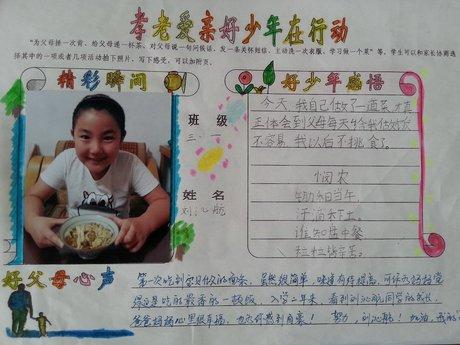 孝老爱亲好少年在行动
"为父母捶一次背、给父母递一杯茶、对父母说一句问候话、发一条关怀短信、主动洗一次衣服、学习做一个菜"等，学生可以和家长协商选
择其中的一项或者几项活动拍下照片、写下感受，可以加附页。
精彩瞬间
好少年感悟
班 级
三．一
姓名
今天我自己做了一道菜，才真
正体会到父母每天为我做好饭
不容易，我以后不挑食了。
悯农
锄禾日当午，
汗滴禾下土。
谁知盘中餐
粒粒皆辛苦。
好父母心声
第一次吃到宝贝做的 虽然很简单，味道有待提高，可作为妈妈觉
得这是吃的最香的一顿饭。入学三年来，看到 同学的成长，
爸爸妈妈心里很幸福，也为你感到自豪！ 努力， 加油，我的